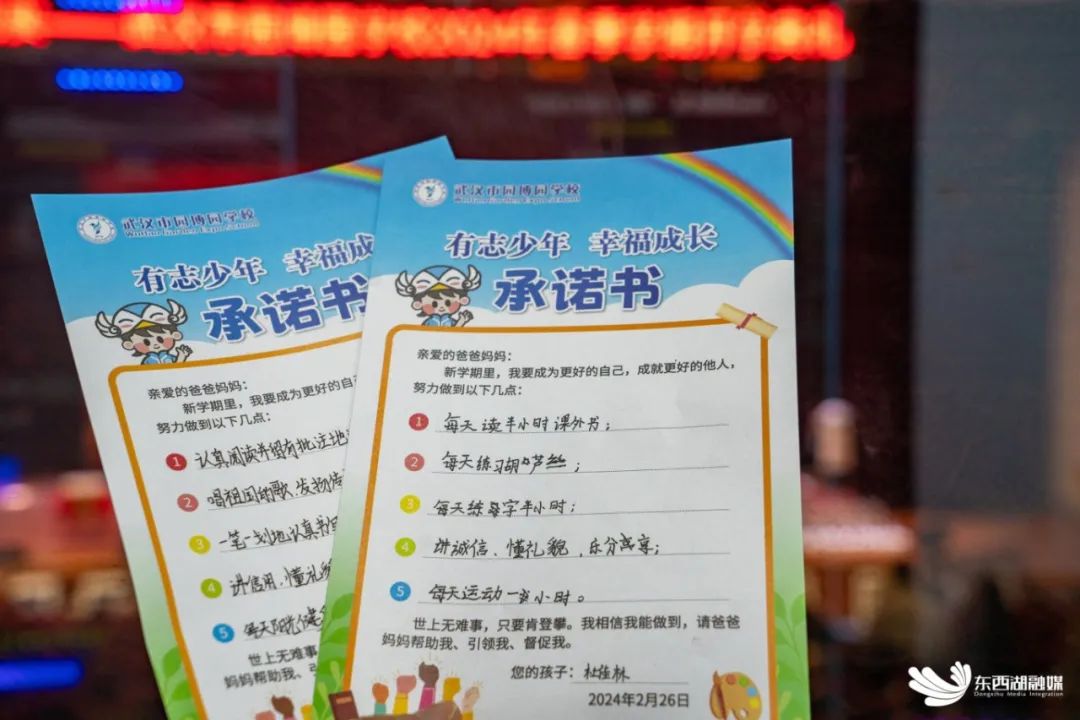 武汉市园博园学校
Wuhan Garden Expo School
有志少年 幸福成
承诺书
亲爱的爸爸妈妈：
新学期里，我要成为更好的自己
努力做到以下几点：
1 认真阅读并留有批注地
2 唱祖国的歌，发扬
3 一笔一划地认真书
4 讲信用、懂礼貌
5 每天阳光健
世上无难事
妈妈帮助我、引
武汉市园博园学校
Wuhan Garden Expo School
有志少年 幸福成长
承诺书
亲爱的爸爸妈妈：
新学期里，我要成为更好的自己，成就更好的他人，
努力做到以下几点：
1 每天读半小时课外书；
2 每天练习葫芦丝；
3 每天练字半小时；
4 讲诚信、懂礼貌，乐分享；
5 每天运动一小时。
世上无难事，只要肯登攀。我相信我能做到，请爸爸
妈妈帮助我、引领我、督促我。
您的孩子：杜佳林
2024年2月26日
东西湖融媒
Dongxihu Media Integration